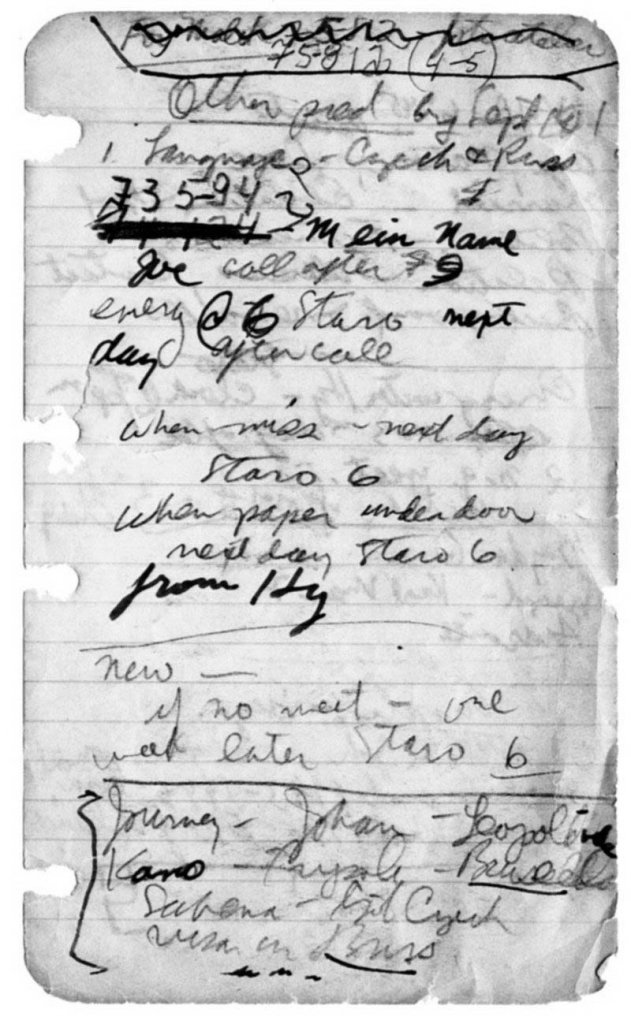 75812 (4-5)
Other pred by Sept 1
1. Languages - Czech & Russ
73 5-94 2
Mein Name
Joe call after 9
energ @ 6 Staro next
day after call
when miss - next day
Staro 6
when paper under door
next day Staro 6
from Hy
new —
if no meet - one
week later Staro 6
Journey - Johan - Leopoldville
Kano - Tripoli -
Sabena - Get Czech
visa in Bruss